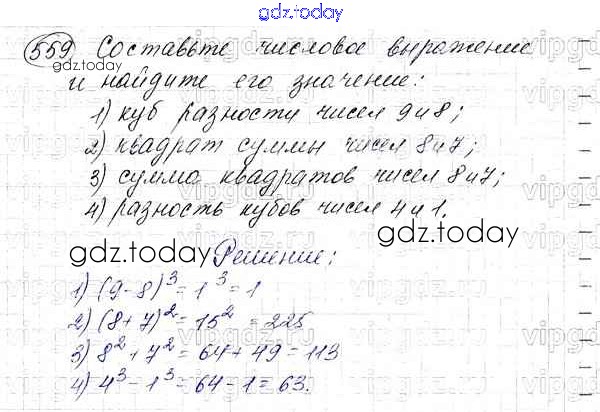 gdz.today
559 Составьте числовое выражение
gdz.today
и найдите его значение:
1) куб разности чисел 9 и 8;
2) квадрат суммы чисел 8 и 7;
3) сумма квадратов чисел 8 и 7;
4) разность кубов чисел 4 и 1.
gdz.today
gdz.today
Решение:
1) (9-8)³ = 1³ = 1
2) (8+7)² = 15² = 225
3) 8² + 7² = 64 + 49 = 113
4) 4³ - 1³ = 64 - 1 = 63.